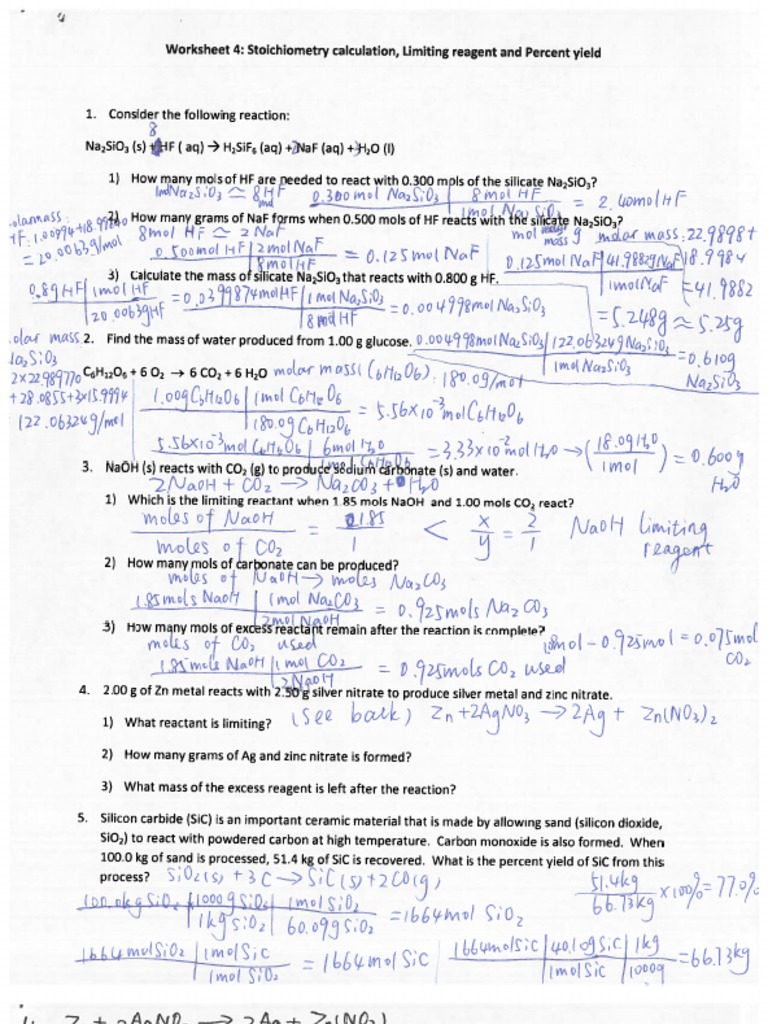 Worksheet 4: Stoichiometry calculation, Limiting reagent and Percent yield
1. Consider the following reaction:
8
Na₂SiO₃ (s) + HF ( aq) → H₂SiF₆ (aq) + 2NaF (aq) + 3H₂O (l)
1) How many mols of HF are needed to react with 0.300 mols of the silicate Na₂SiO₃?
1mol Na₂SiO₃ ≃ 8 HF 0.300mol Na₂SiO₃ | 8 mol HF = 2.40mol HF
mol 1mol Na₂SiO₃
2) How many grams of NaF forms when 0.500 mols of HF reacts with the silicate Na₂SiO₃?
olarmass:
HF: 1.00794+18.99840
= 20.0063g/mol
8mol HF ≃ 2 NaF
0.500mol HF | 2mol NaF = 0.125mol NaF
8mol HF
mol → g
mass molar mass: 22.9898+
18.9984
=41.9882
0.125mol NaF | 41.9882gNaF
1molNaF
=5.248g ≈ 5.25g
3) Calculate the mass of silicate Na₂SiO₃ that reacts with 0.800 g HF.
0.8g HF | 1mol HF = 0.0399874molHF | 1mol Na₂SiO₃ = 0.004998mol Na₂SiO₃
20.0063gHF 8molHF
olar mass
Na₂SiO₃
2×22.989770
+28.0855+3×15.9994
122.06324g/mol
0.004998molNa₂SiO₃ | 122.06324gNa₂SiO₃ = 0.610g
1molNa₂SiO₃ Na₂SiO₃
2. Find the mass of water produced from 1.00 g glucose.
C₆H₁₂O₆ + 6 O₂ → 6 CO₂ + 6 H₂O molar mass (C₆H₁₂O₆): 180.0g/mol
1.00gC₆H₁₂O₆ | 1mol C₆H₁₂O₆ = 5.56×10⁻³molC₆H₁₂O₆
180.0gC₆H₁₂O₆
5.56×10⁻³mol C₆H₁₂O₆ | 6mol H₂O = 3.33×10⁻²mol H₂O → (18.0gH₂O) = 0.600g
1mol C₆H₁₂O₆ 1mol H₂O
3. NaOH (s) reacts with CO₂ (g) to produce sodium carbonate (s) and water.
2NaOH + CO₂ → Na₂CO₃ + H₂O
1) Which is the limiting reactant when 1.85 mols NaOH and 1.00 mols CO₂ react?
moles of NaOH = 1.85 < x = 2 NaOH limiting
moles of CO₂ 1 y 1 reagent
2) How many mols of carbonate can be produced?
moles of NaOH → moles Na₂CO₃
1.85mols NaOH | 1mol Na₂CO₃ = 0.925mols Na₂CO₃
2mol NaOH
3) How many mols of excess reactant remain after the reaction is complete?
moles of CO₂ used
1.85mole NaOH | 1 mol CO₂ = 0.925mols CO₂ used
2NaOH
mol − 0.925mol = 0.075mol
CO₂
4. 2.00 g of Zn metal reacts with 2.50 g silver nitrate to produce silver metal and zinc nitrate.
1) What reactant is limiting? (See back) Zn+2AgNO₃ → 2Ag + Zn(NO₃)₂
2) How many grams of Ag and zinc nitrate is formed?
3) What mass of the excess reagent is left after the reaction?
5. Silicon carbide (SiC) is an important ceramic material that is made by allowing sand (silicon dioxide,
SiO₂) to react with powdered carbon at high temperature. Carbon monoxide is also formed. When
100.0 kg of sand is processed, 51.4 kg of SiC is recovered. What is the percent yield of SiC from this
process? SiO₂(s) + 3C → SiC(s) + 2CO(g)
51.4kg ×100%=77.0%
66.73kg
100.0kg SiO₂ | 1000g SiO₂ | 1mol SiO₂ = 1664mol SiO₂
1kg SiO₂ 60.09g SiO₂
1664molSiO₂ | 1molSiC = 1664molSiC
1mol SiO₂
1664molSiC | 40.10gSiC | 1kg = 66.73kg
1molSiC 1000g
Zn + 2AgNO₃ → 2Ag + Zn(NO₃)